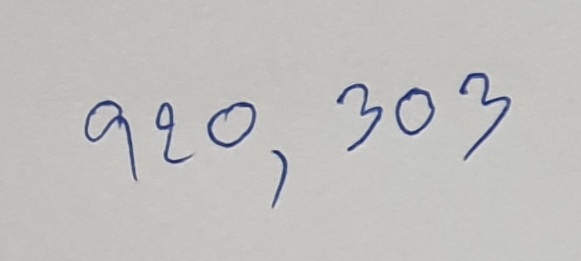 920, 303